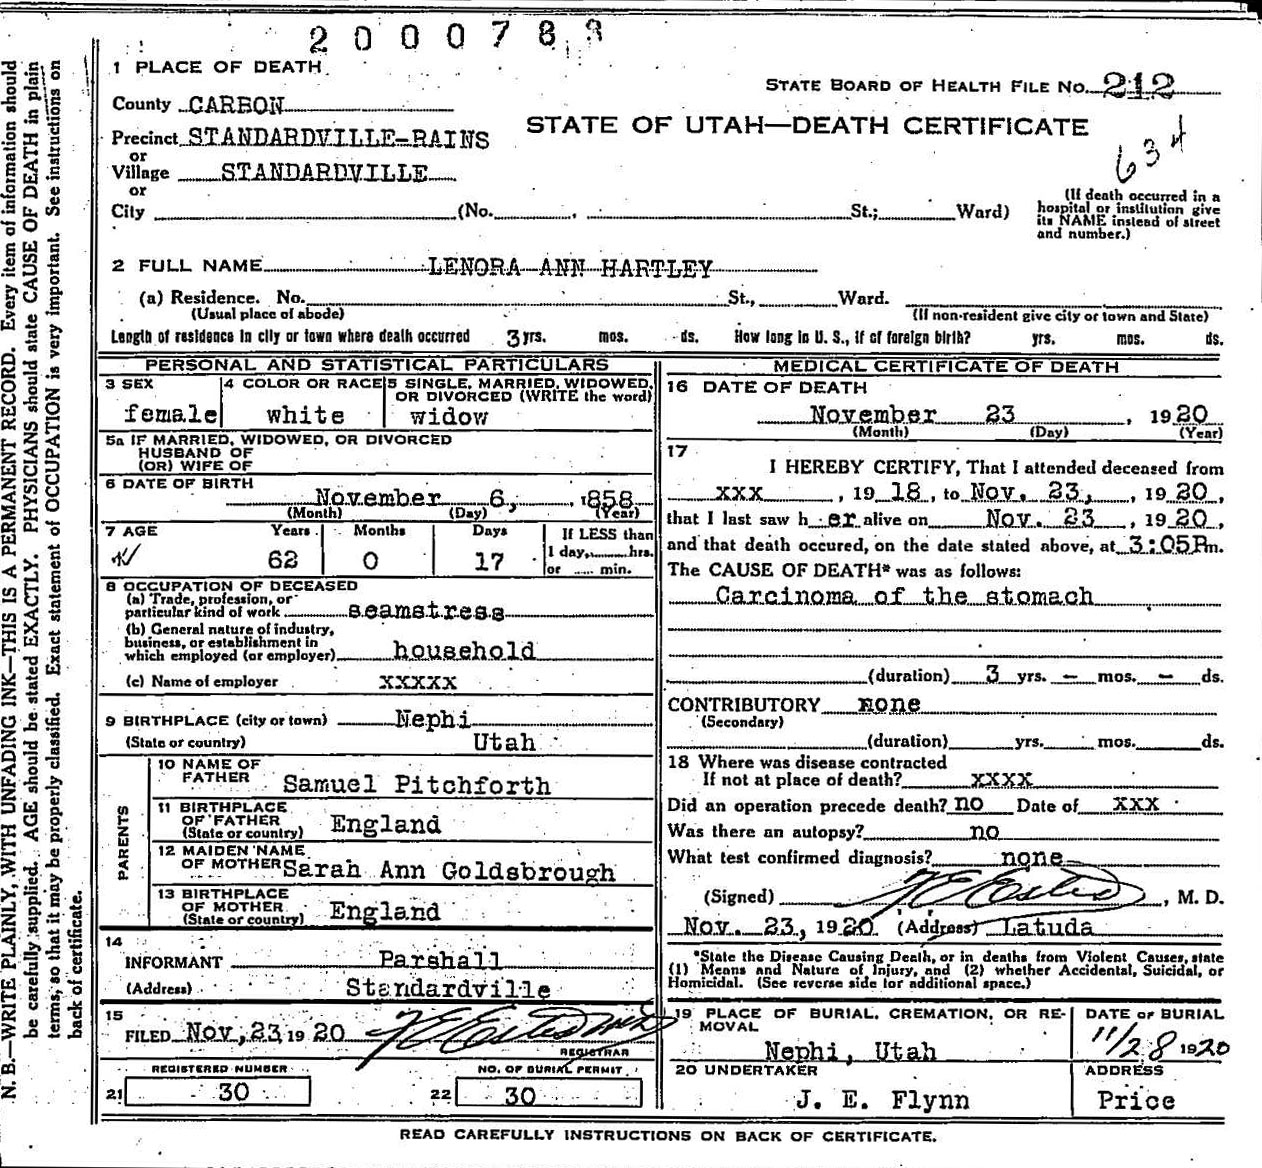 2000783
1 PLACE OF DEATH
STATE BOARD OF HEALTH FILE No. 212
County CARBON
STATE OF UTAH—DEATH CERTIFICATE
634
Precinct STANDARDVILLE-RAINS
or
Village STANDARDVILLE
or
City (No. , St.; Ward)
(If death occurred in a hospital or institution give its NAME instead of street and number.)
2 FULL NAME LENORA ANN HARTLEY
(a) Residence. No. St., Ward.
(Usual place of abode) (If non-resident give city or town and State)
Length of residence in city or town where death occurred 3 yrs. mos. ds. How long in U. S., if of foreign birth? yrs. mos. ds.
PERSONAL AND STATISTICAL PARTICULARS
3 SEX 4 COLOR OR RACE 5 SINGLE, MARRIED, WIDOWED, OR DIVORCED (WRITE the word)
female white widow
5a IF MARRIED, WIDOWED, OR DIVORCED
HUSBAND OF
(OR) WIFE OF
6 DATE OF BIRTH
November 6, 1858
(Month) (Day) (Year)
7 AGE Years Months Days If LESS than
62 0 17 1 day, hrs.
or min.
8 OCCUPATION OF DECEASED
(a) Trade, profession, or
particular kind of work seamstress
(b) General nature of industry,
business, or establishment in
which employed (or employer) household
(c) Name of employer xxxxx
9 BIRTHPLACE (city or town) Nephi
(State or country) Utah
PARENTS
10 NAME OF
FATHER Samuel Pitchforth
11 BIRTHPLACE
OF FATHER
(State or country) England
12 MAIDEN NAME
OF MOTHER Sarah Ann Goldsbrough
13 BIRTHPLACE
OF MOTHER
(State or country) England
14
INFORMANT Parshall
(Address) Standardville
15
FILED Nov, 23 19 20
REGISTRAR
REGISTERED NUMBER NO. OF BURIAL PERMIT
21 30 22 30
MEDICAL CERTIFICATE OF DEATH
16 DATE OF DEATH
November 23 , 1920
(Month) (Day) (Year)
17
I HEREBY CERTIFY, That I attended deceased from
xxx , 19 18, to Nov. 23, , 19 20,
that I last saw h er alive on Nov. 23 , 19 20,
and that death occured, on the date stated above, at 3:05P m.
The CAUSE OF DEATH* was as follows:
Carcinoma of the stomach
(duration) 3 yrs. — mos. — ds.
CONTRIBUTORY none
(Secondary)
(duration) yrs. mos. ds.
18 Where was disease contracted
If not at place of death? xxxx
Did an operation precede death? no Date of xxx
Was there an autopsy? no
What test confirmed diagnosis? none
(Signed) , M. D.
Nov. 23, 1920 (Address) Latuda
*State the Disease Causing Death, or in deaths from Violent Causes, state
(1) Means and Nature of Injury, and (2) whether Accidental, Suicidal, or
Homicidal. (See reverse side for additional space.)
19 PLACE OF BURIAL, CREMATION, OR RE-
MOVAL
Nephi, Utah
DATE OF BURIAL
11/28 1920
20 UNDERTAKER ADDRESS
J. E. Flynn Price
READ CAREFULLY INSTRUCTIONS ON BACK OF CERTIFICATE.
N. B.—WRITE PLAINLY, WITH UNFADING INK—THIS IS A PERMANENT RECORD. Every item of information should
be carefully supplied. AGE should be stated EXACTLY. PHYSICIANS should state CAUSE OF DEATH in plain
terms, so that it may be properly classified. Exact statement of OCCUPATION is very important. See instructions on
back of certificate.